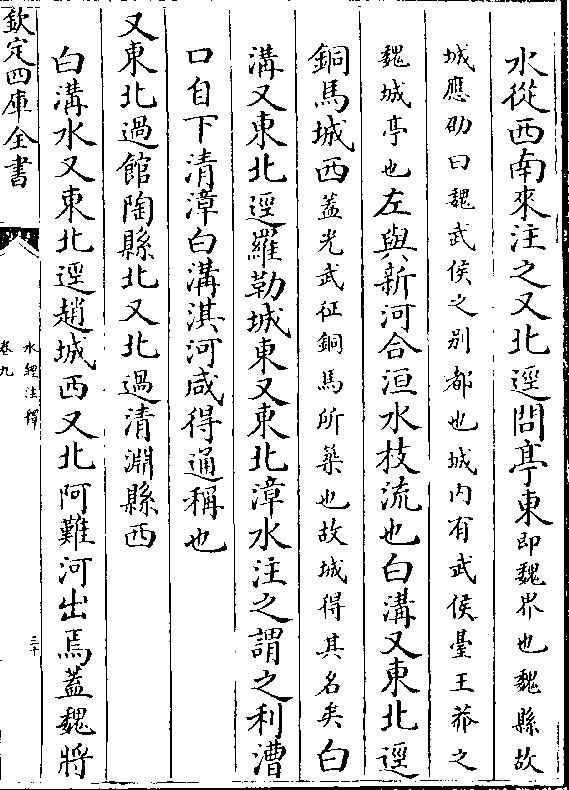 水從西南來注之又北逕問亭東即魏界也魏縣故
城應劭曰魏武侯之别都也城内有武侯臺王莽之
魏城亭也左與新河合洹水枝流也白溝又東北逕
銅馬城西蓋光武征銅馬所築也故城得其名矣白
溝又東北逕羅勒城東又東北漳水注之謂之利漕
口自下清漳白溝淇河咸得通稱也
又東北過館陶縣北又北過清淵縣西
白溝水又東北逕趙城西又北阿難河出焉蓋魏將
欽定四庫全書
水經注釋
卷九
三十